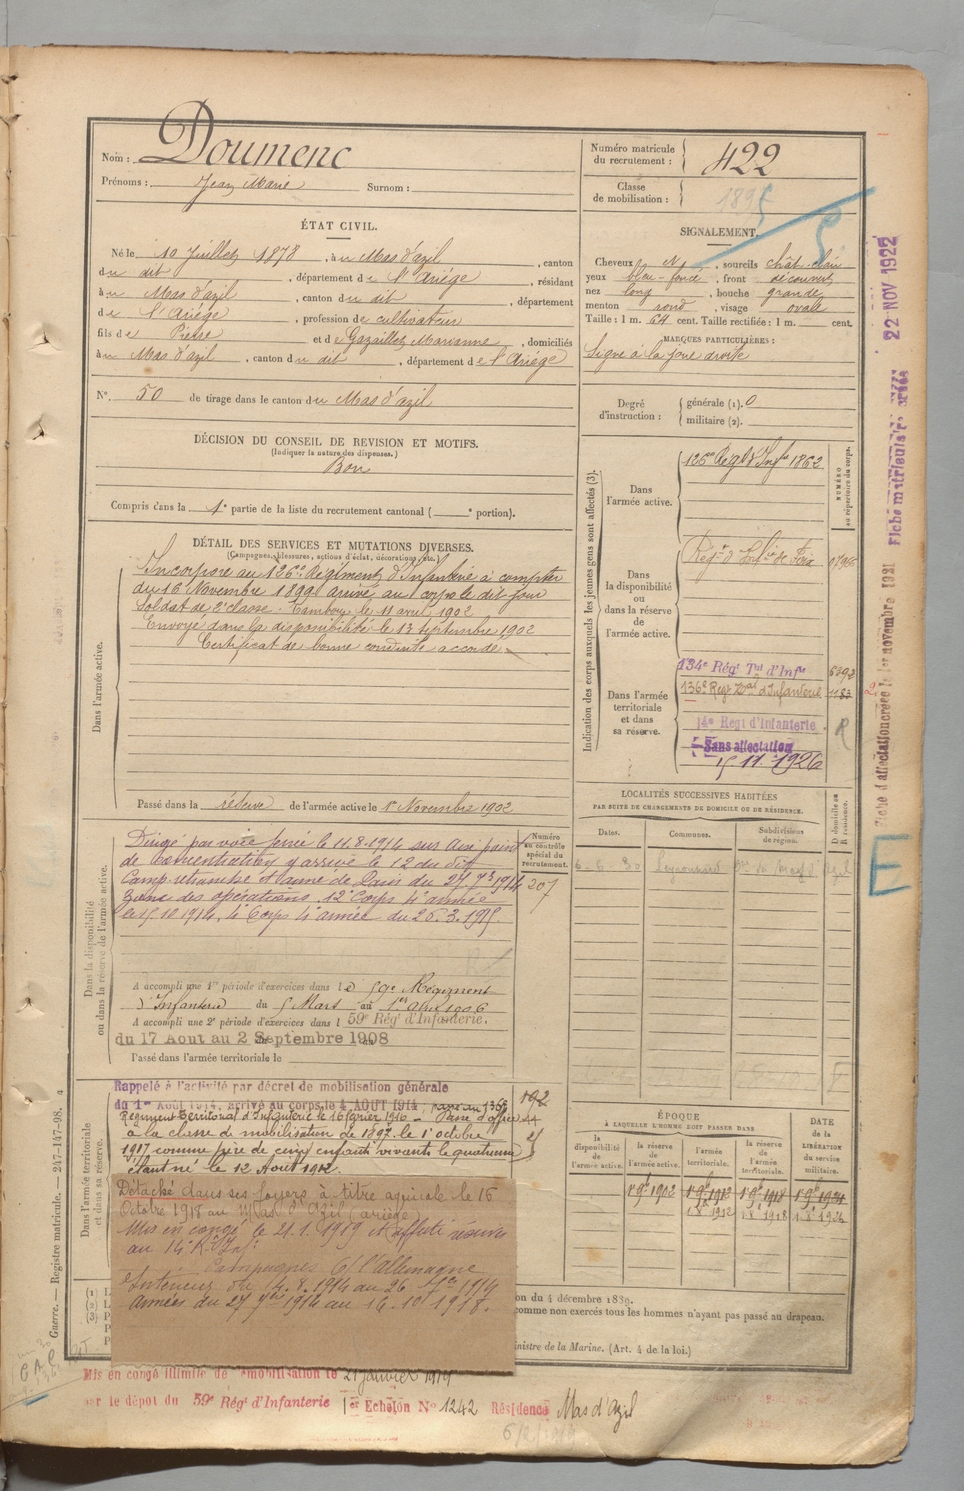 Nom : Doumenc
Prénoms : Jean Marie Surnom :
Numéro matricule
du recrutement : 422
Classe
de mobilisation : 1895
ÉTAT CIVIL.
Né le 10 Juillet 1878, à u Mas d'azil, canton
du dit, département de l'Ariège, résidant
à u Mas d'azil, canton du dit, département
de l'Ariège, profession de cultivateur
fils de Pierre et de Gazaillet Marianne, domiciliés
à u Mas d'azil, canton du dit, département de l'Ariège
N°. 50 de tirage dans le canton du Mas d'azil
SIGNALEMENT.
Cheveux N, sourcils chât. clair
yeux bleu-foncé, front découvert
nez long, bouche grande
menton rond, visage ovale
Taille : 1 m. 64 cent. Taille rectifiée : 1 m. cent.
MARQUES PARTICULIÈRES :
Signe à la joue droite
Degré
d'instruction :
générale (1). 0
militaire (2).
DÉCISION DU CONSEIL DE REVISION ET MOTIFS.
(Indiquer la nature des dispenses.)
Bon
Compris dans la 1e partie de la liste du recrutement cantonal ( e portion).
DÉTAIL DES SERVICES ET MUTATIONS DIVERSES.
(Campagnes, blessures, actions d'éclat, décorations, etc.)
Dans l'armée active.
Incorporé au 126e Régiment d'Infanterie à compter
du 16 Novembre 1899 arrivé au corps le dit jour
Soldat de 2e classe. Tambour le 11 avril 1902
Envoyé dans la disponibilité le 13 septembre 1902
Certificat de bonne conduite accordé.
Passé dans la réserve de l'armée active le 1er Novembre 1902
Indication des corps auxquels les jeunes gens sont affectés (3).
NUMÉRO
au répertoire du corps.
Dans
l'armée active.
126e Régt d'Infie 1862
Dans
la disponibilité
ou
dans la réserve
de
l'armée active.
Régt d'Infie de Foix
Dans l'armée
territoriale
et dans
sa réserve.
134e Régt Tal d'Infie
136e Régt Tal d'Infanterie
14e Régt d'Infanterie
R
Sans affectation
11. 1926
LOCALITÉS SUCCESSIVES HABITÉES
PAR SUITE DE CHANGEMENTS DE DOMICILE OU DE RÉSIDENCE.
D domicile ou
R résidence.
Dates.
Communes.
Subdivisions
de région.
Dans la disponibilité
ou dans la réserve de l'armée active.
Numéro
au contrôle
spécial du
recrutement.
207
Dirigé par voie ferrée le 11.8.1914 sur
de concentration y arrivé le 12 du dit
Camp retranché et armé de Paris du 27 7bre 1914
Zone des opérations. 12e Corps 4e armée
le 1914, 4e Corps 4e armée du 26.3.1915.
A accompli une 1re période d'exercices dans le 59e Régiment
d'Infanterie du 5 Mars au 1er Avril 1906
A accompli une 2e période d'exercices dans l 59e Régt d'Infanterie.
du 17 Aout au 2 Septembre 1908
Passé dans l'armée territoriale le
Dans l'armée territoriale
et dans sa réserve.
Rappelé à l'activité par décret de mobilisation générale
du 1er Août 1914, arrivé au corps le 4 AOUT 1914, passé au 136e
Régiment Territorial d'Infanterie le 16 février 1916 - Passé d'office
à la classe de mobilisation de 1897 le 1er octobre
1917 comme père de cinq enfants vivants le quatrième
étant né le 12 Août 1912.
Détaché dans ses foyers à titre agricole le 16
Octobre 1918 au Mas d'Azil (ariège)
Mis en congé le 21.1.1919 et affecté réserve
au 14e Rt Inf.
Campagnes C/ l'Allemagne
Intérieur du 4.8.1914 au 26 7bre 1914
Armées du 27 7bre 1914 au 16.10bre 1918.
ÉPOQUE
À LAQUELLE L'HOMME DOIT PASSER DANS
la
disponibilité
de
l'armée active.
la réserve
de
l'armée active.
l'armée
territoriale.
la réserve
de
l'armée
territoriale.
DATE
de la
LIBÉRATION
du service
militaire.
1er 9bre 1902
1er 9bre 1912
1er 9bre 1918
1er 9bre 1924
on du 4 décembre 1889.
comme non exercés tous les hommes n'ayant pas passé au drapeau.
inistre de la Marine. (Art. 4 de la loi.)
Mis en congé illimité de démobilisation le 21 janvier 1919
par le dépot du 59e Régt d'Infanterie 1er Echelon N° 1242 Résidence Mas d'Azil
Guerre. — Registre matricule. — 247-147-98.
Fiche d'affectation créée le 1er novembre 1921
Fiche matricule créée 22 NOV 1922
E